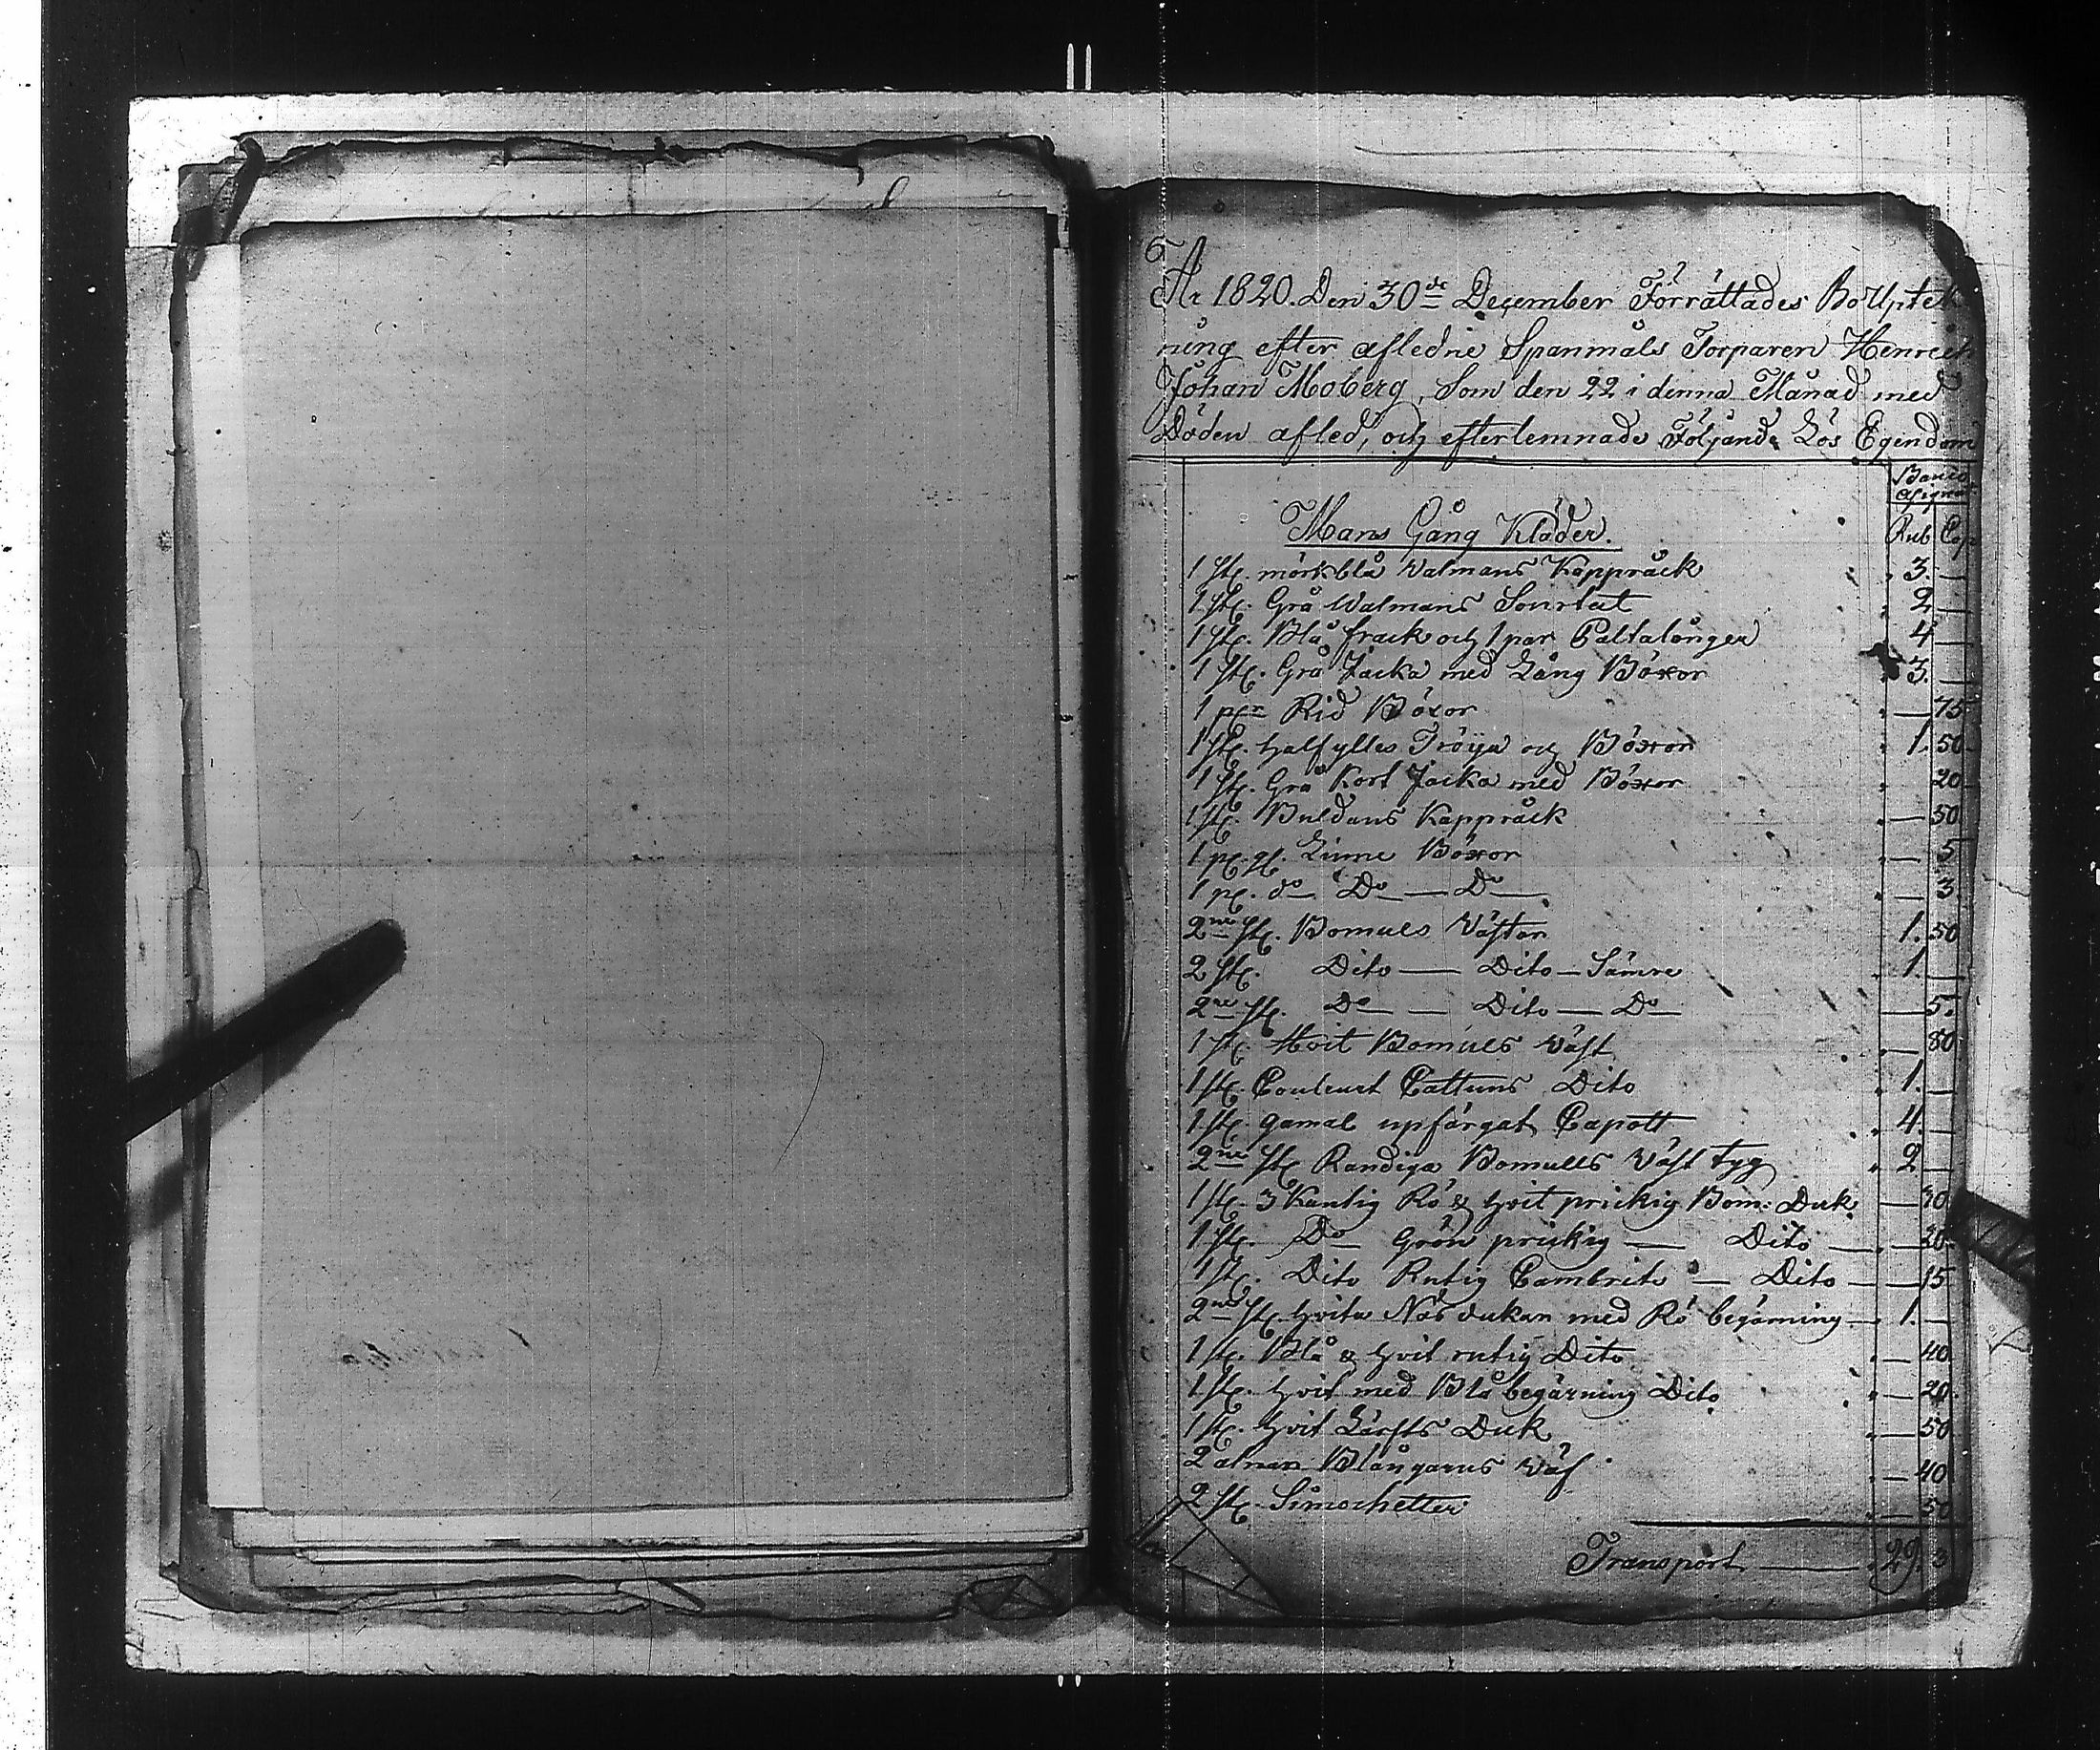 År 1820. Den 30de December Förrättades Bo Uptek
ning efter aflednе Spanmåls Torparen Henrich
Johan Moberg, Som den 22 i denna Månad med
Döden afled, och efterlemnade Följande Lös Egendom
Banco
Asignat:
Rub Cop
Mans Gång Kläder.
1 st. mörkblå Valmans Kappråck 3. —
1 st. Grå Walmans Sourtut 2 —
1 st. Blå frack och 1 par Paltalånger 4 —
1 st. Grå Jacka med Lång Böxor 3. —
1 par Rid Böxor — 75
1 st. halfylles Tröija och Böxor 1. 50
1 st. Grå Kort Jacka med Böxor 20
1 st. Buldans Kappråck — 50
1 p. gl. Linne Böxor — 5
1 p. do Do — Do — 3
2ne st. Bomuls Västar 1. 50
2 st. Dito — Dito — Sämre 1. —
2ne st. Do — Dito — Do — 5.
1 st. Hvit Bomuls Väst — 80
1 st. Couleurt Cattuns Dito 1. —
1 st. gamal upfärgat Capott 4. —
2ne st Randiga Bomulls Väst tyg 2 —
1 st. 3 Kantig Rö & hvit prickig Bom: Duk — 30
1 st. Do Grön prickig — Dito — 20
1 st. Dito Rutig Cambrits — Dito — 15
2ne st. hvita Näs dukar med Rö begärning 1. —
1 st. Blå & hvit rutig Dito — 40
1 st. hvit med Blå begärning Dito — 20
1 st. hvit Lärfts Duk — 50
2 alnar Blångarns Väf — 40
2 st. Simochetter — 50
Transport — 29. 3